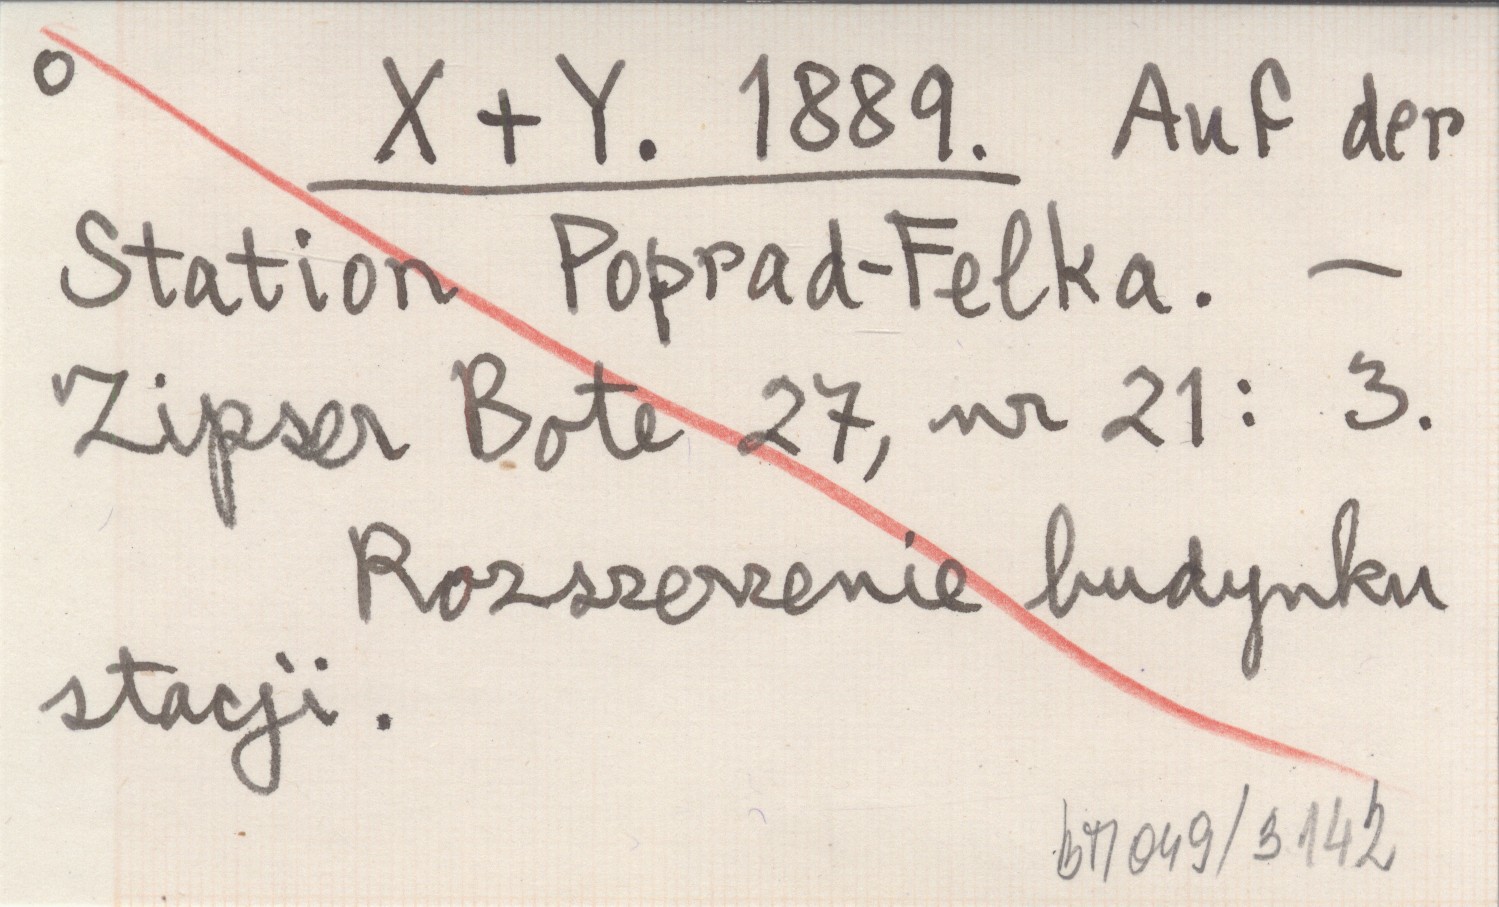 o X + Y. 1889. Auf der
Station Poprad-Felka. —
Zipser Bote 27, nr 21: 3.
Rozszerzenie budynku
stacji.
049/3142